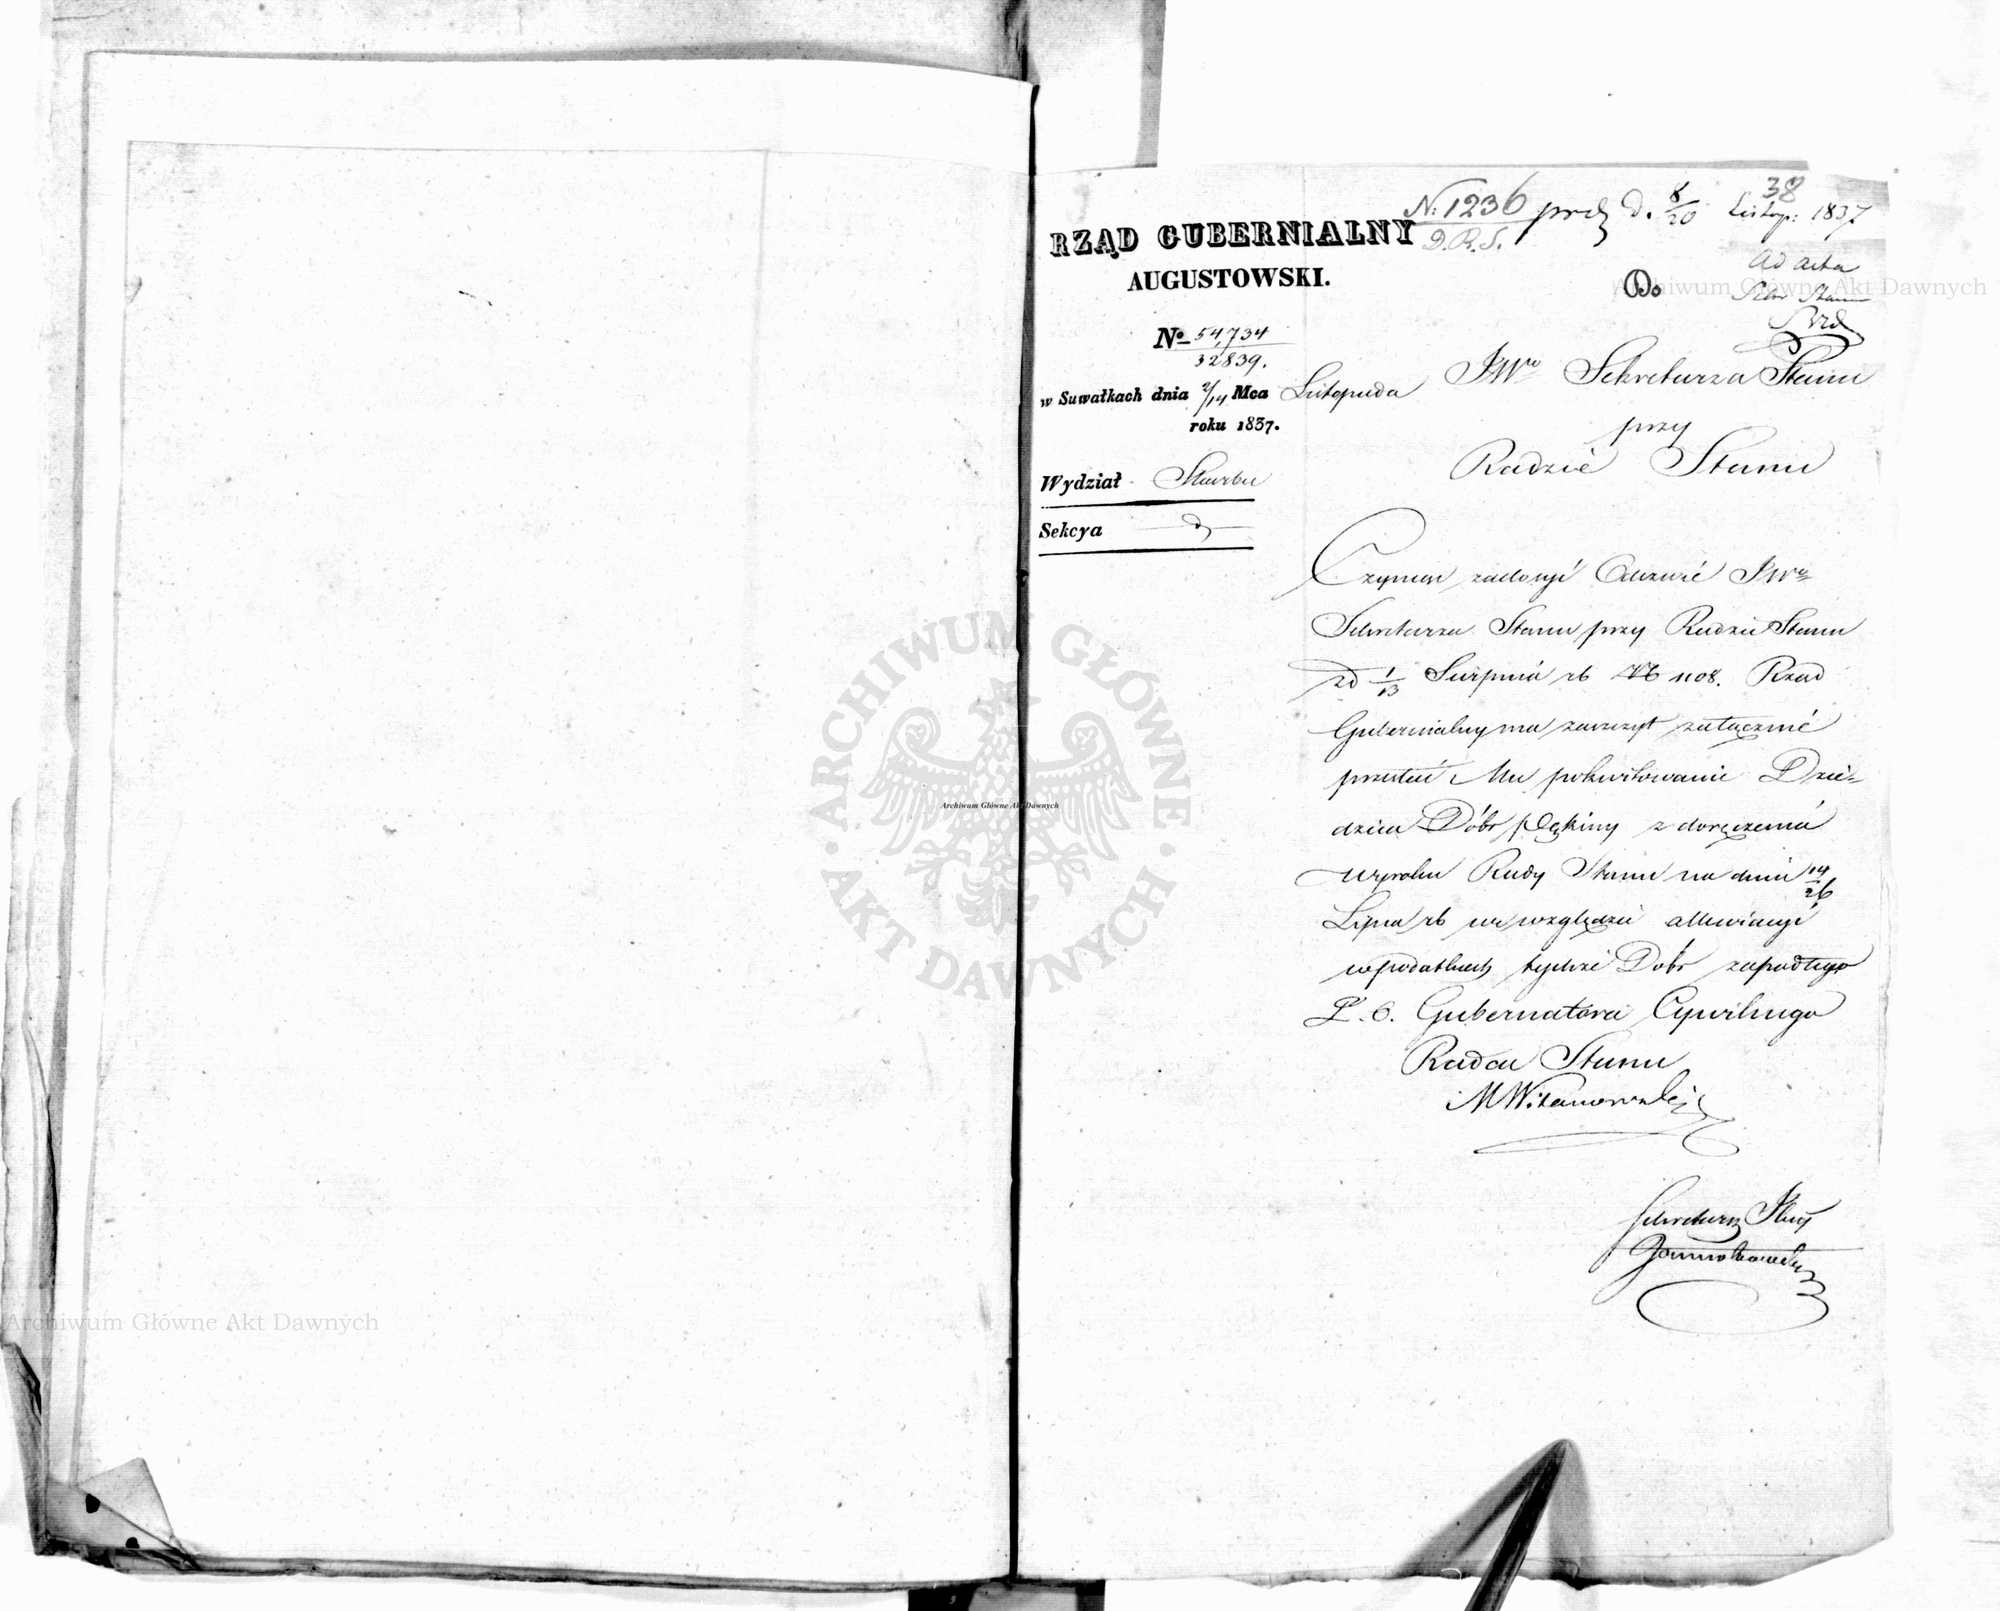 38
N. 1236 prd. d. 8/20 Listop: 1837
D.R.S.
RZĄD GUBERNIALNY
AUGUSTOWSKI.
Ad acta
Do
Stanu
No 54,734
32839.
JWo Sekretarza Stanu
w Suwałkach dnia 2/14 Mca Listopada
roku 1837.
przy
Radzie Stanu
Wydział Skarbu
Sekcya
Czyniąc zadosyć Odezwie JWo
Sekretarza Stanu przy Radzie Stanu
zd 1/13 Sierpnia rb No 1108. Rząd
Gubernialny ma zaszczyt załącznie
przesłać Mu pokwitowanie Dzie-
dzica Dóbr z doręczenia
wyroku Rady Stanu na dniu 14/26
Lipca rb we względzie allewiacyi
w podatkach tychże Dóbr zapadłego
P. O. Gubernatora Cywilnego
Radca Stanu
M Witanowski
Sekretarz
Archiwum Główne Akt Dawnych
ARCHIWUM GŁÓWNE · AKT DAWNYCH ·
Archiwum Główne Akt Dawnych
Archiwum Główne Akt Dawnych